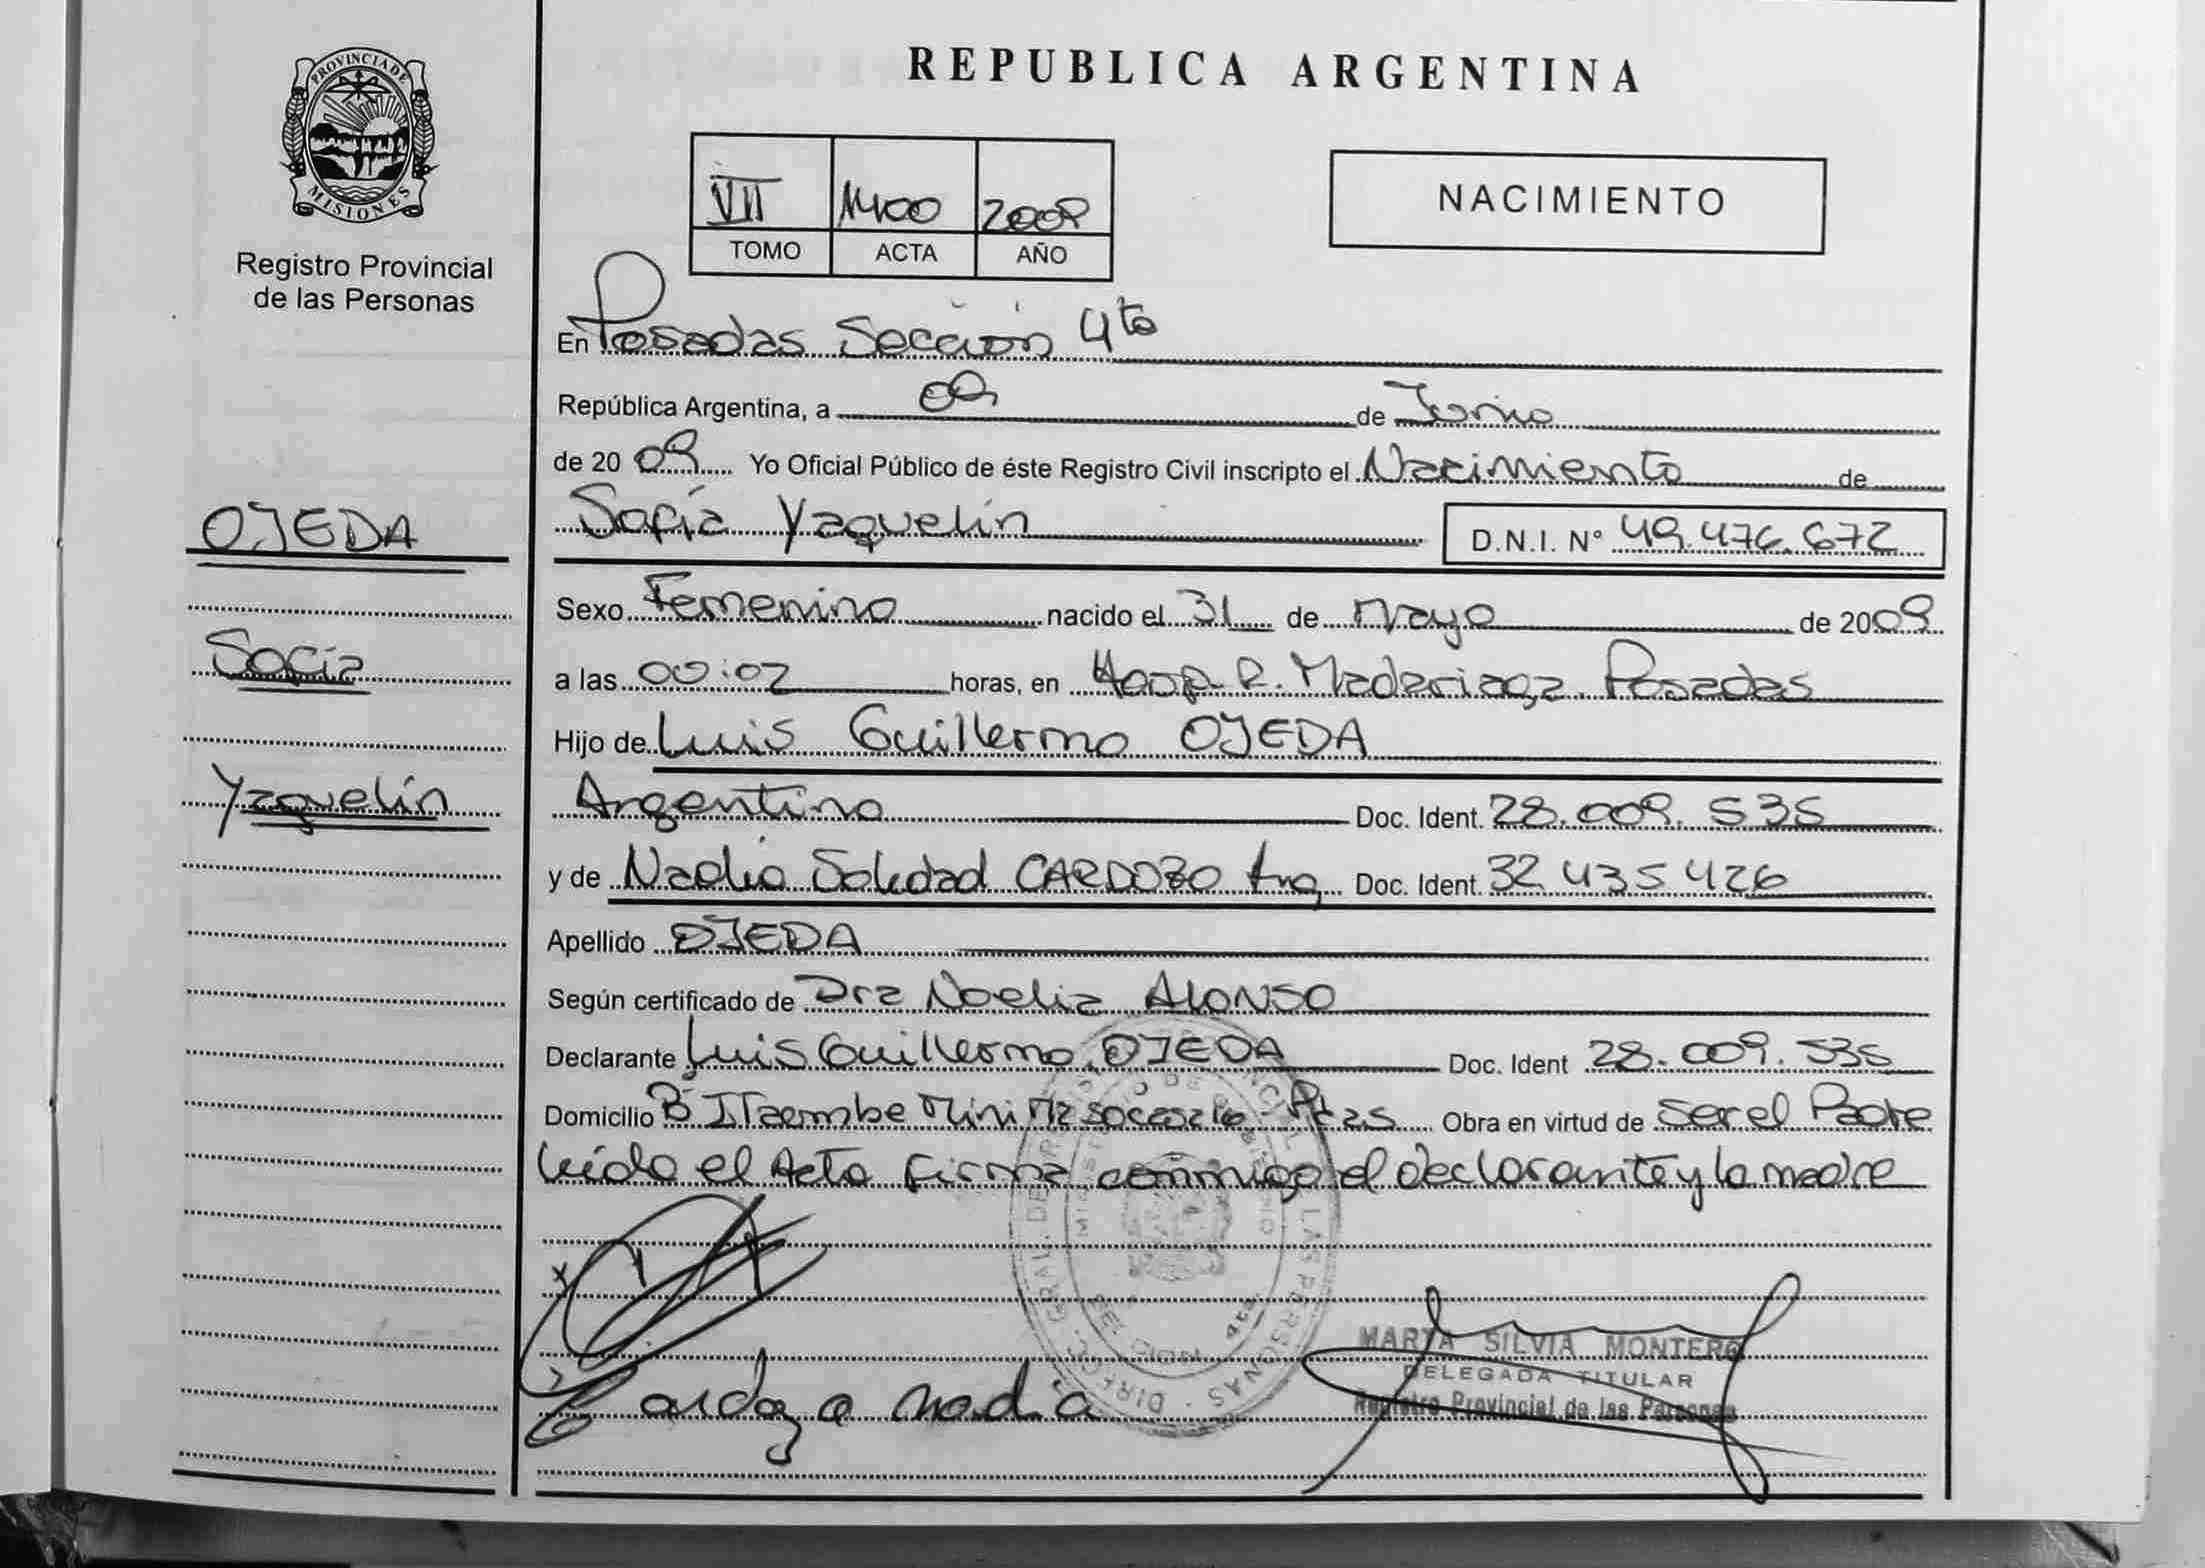 PROVINCIA DE
MISIONES
Registro Provincial
de las Personas
OJEDA
Sofía
Yaquelín
REPUBLICA ARGENTINA
VII 1400 2009
TOMO ACTA AÑO
NACIMIENTO
En Posadas Sección 4ta
República Argentina, a 09 de Junio
de 20 09 Yo Oficial Público de éste Registro Civil inscripto el Nacimiento de
Sofía Yaquelín D.N.I. N° 49.476.672
Sexo Femenino nacido el 31 de Mayo de 2009
a las 00:02 horas, en Hosp R. Madariaga. Posadas
Hijo de Luis Guillermo OJEDA
Argentino Doc. Ident. 28.009.535
y de Nadia Soledad CARDOZO Arg Doc. Ident. 32 435 426
Apellido OJEDA
Según certificado de Dra Noelia ALONSO
Declarante Luis Guillermo OJEDA Doc. Ident 28.009.535
Domicilio B° Itaembe Mini Pdas Obra en virtud de Ser el Padre
leído el Acta firma conmigo el declarante y la madre
Cardozo nadia
MARTA SILVIA MONTERO
DELEGADA TITULAR
Registro Provincial de las Personas